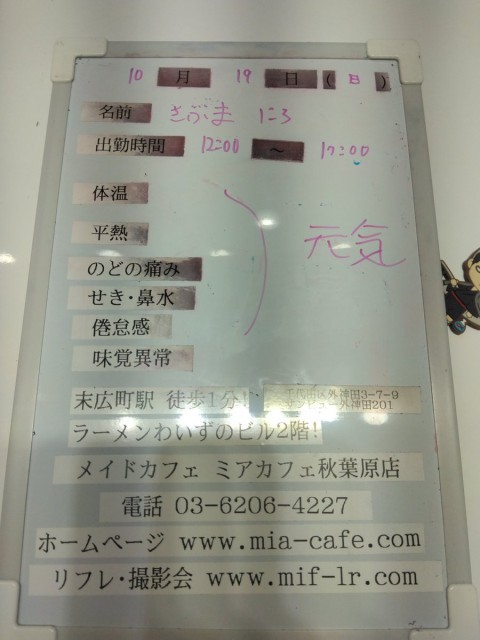 10月19日(日)
名前 さぶま にろ
出勤時間 12:00 ～ 17:00
体温
平熱
元気
のどの痛み
せき・鼻水
倦怠感
味覚異常
末広町駅 徒歩1分!
千代田区外神田3-7-9
外神田201
ラーメンわいずのビル2階!
メイドカフェ ミアカフェ秋葉原店
電話 03-6206-4227
ホームページ www.mia-cafe.com
リフレ・撮影会 www.mif-lr.com